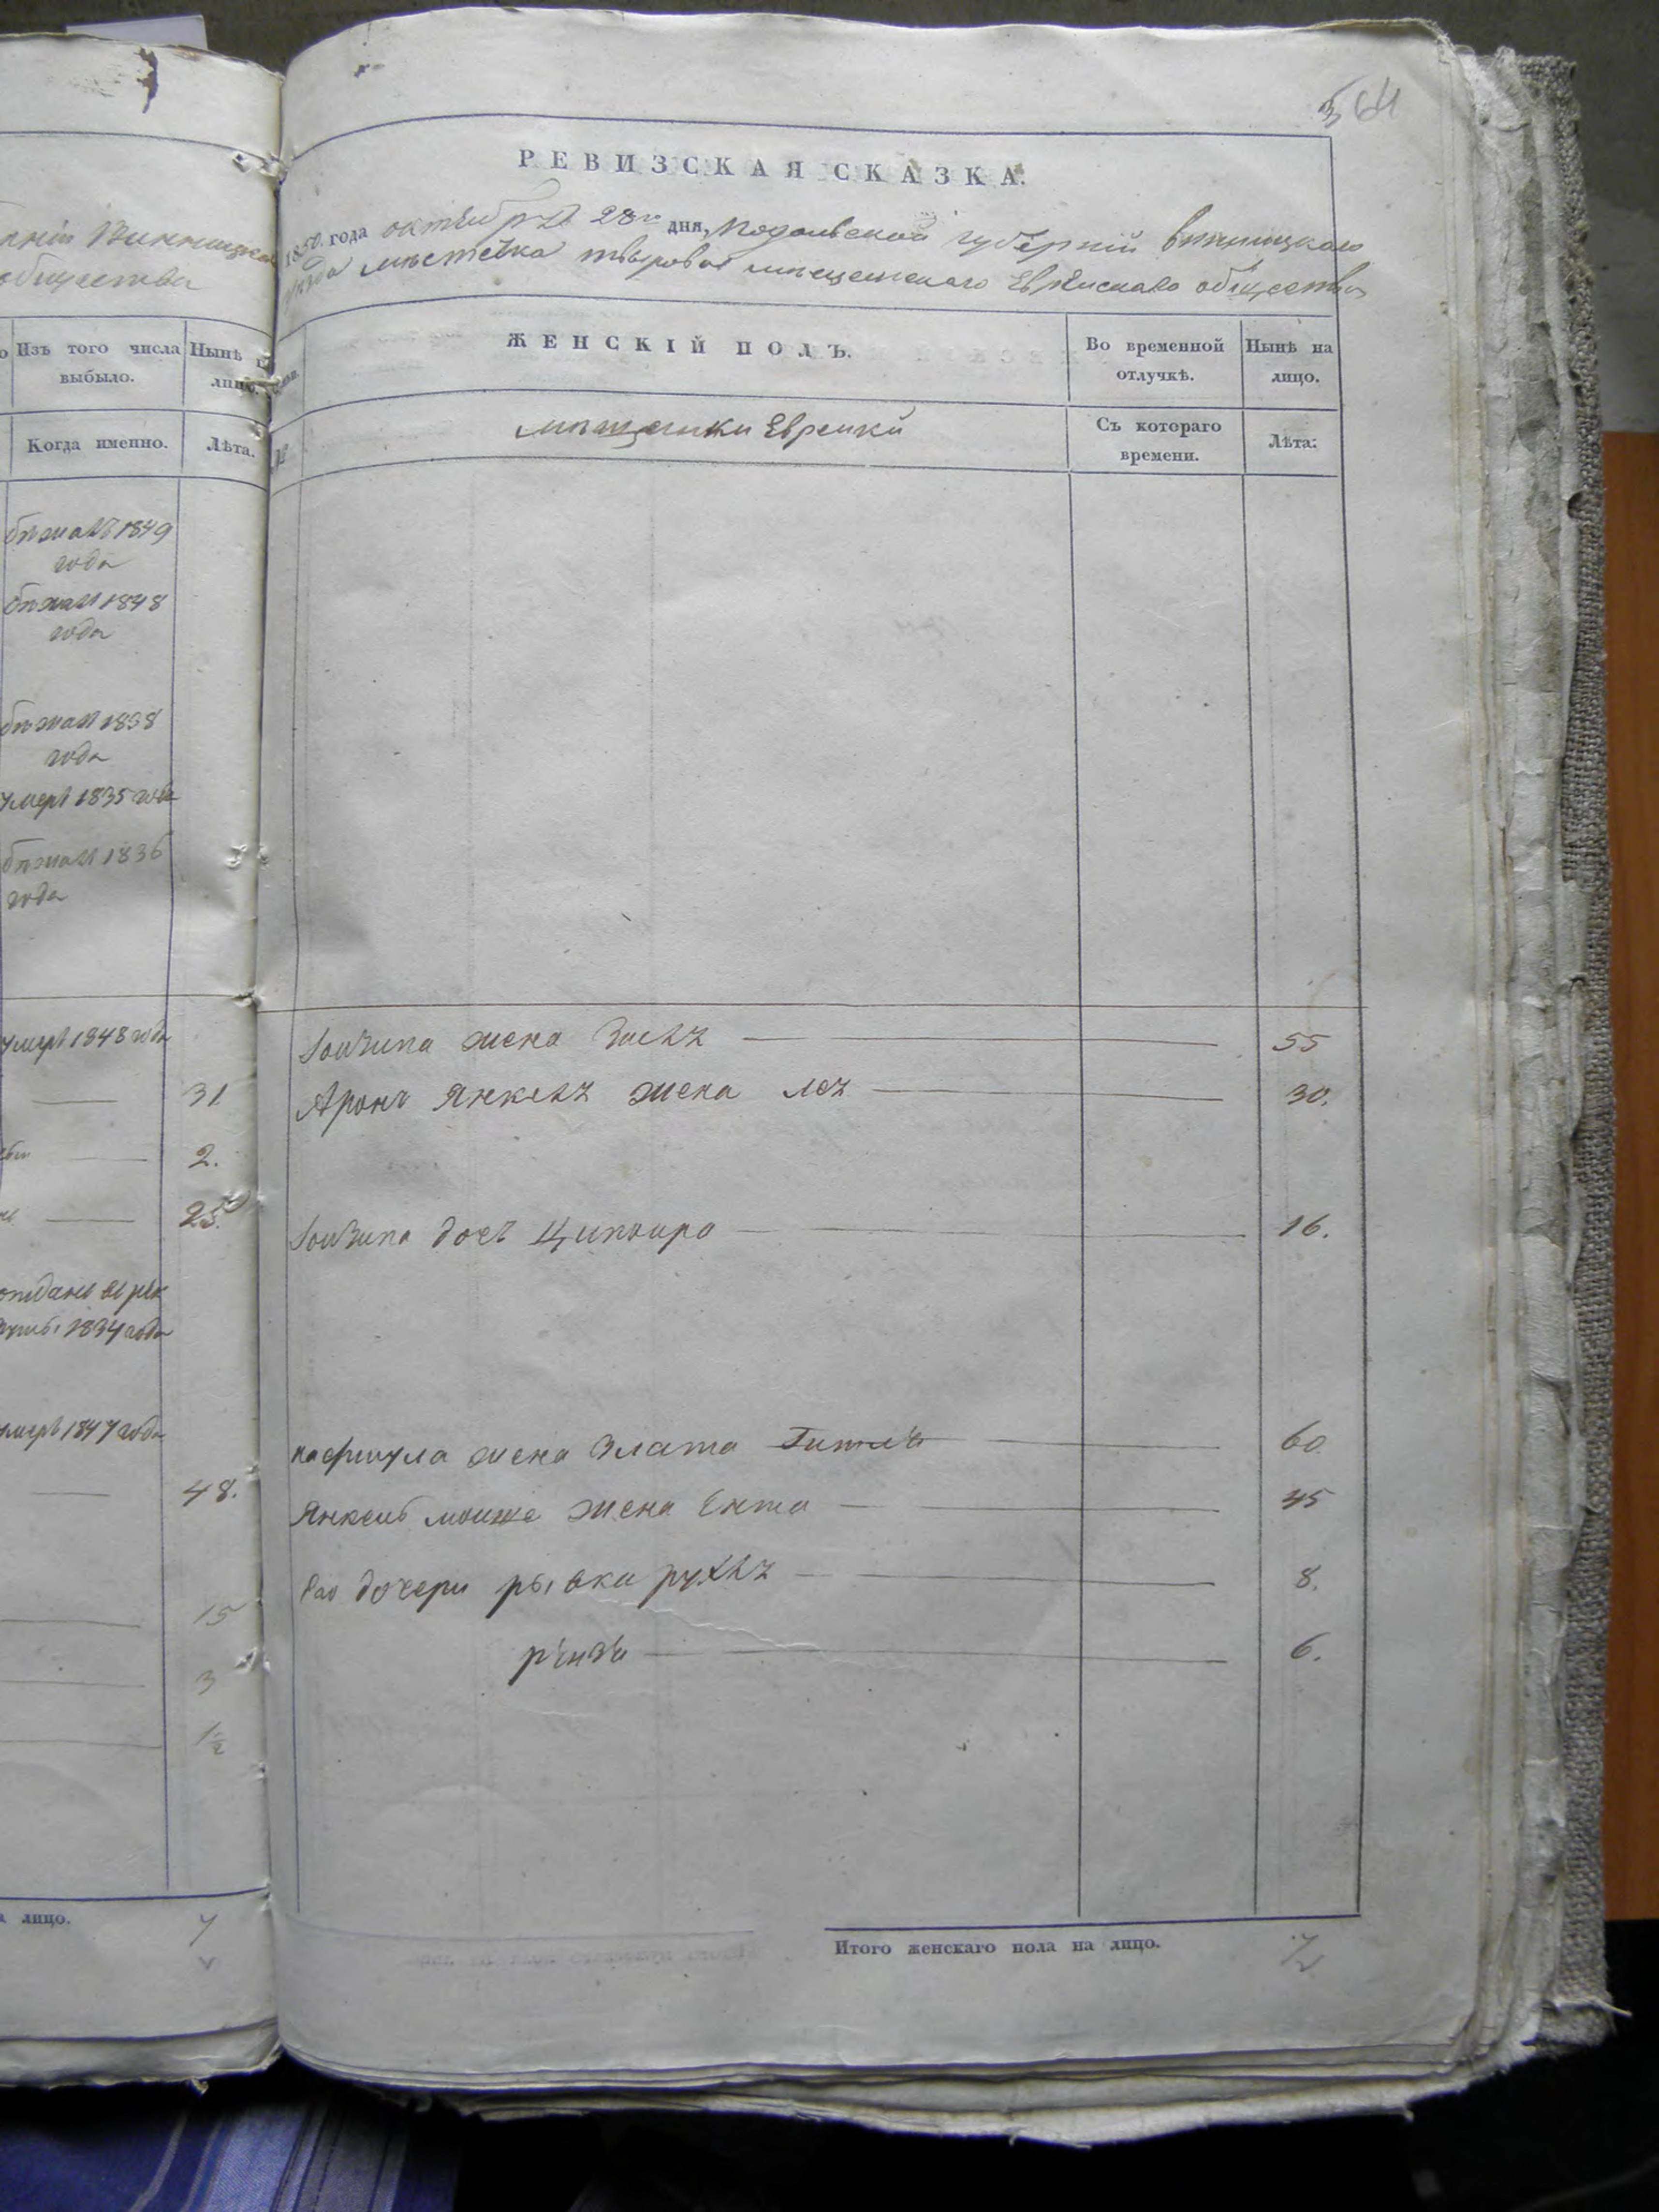 нiи Винницка
общества
Изъ того числа
выбыло.
Нынѣ
Когда именно.
Лѣта.
бѣжалъ 1849
года
бѣжалъ 1848
года
бѣжалъ 1838
года
умеръ 1835 года
бѣжалъ 1836
года
умеръ 1848 года
31
2.
25.
отданъ въ рек
руты 1834 года
умеръ 1847 года
48.
15
3
1½
лицо.
7
64
РЕВИЗСКАЯ СКАЗКА.
1850. года октября 28го дня, Подольской губернiи винницкаго
уѣзда мѣстечка тыврова мѣщанскаго Еврейскаго общества
ЖЕНСКIЙ ПОЛЪ.
Во временной
отлучкѣ.
Нынѣ на
лицо.
мѣщанки Еврейки
Съ котораго
времени.
Лѣта.
жена 55
Аронъ Янкель жена лея 30.
дочь Ципойра 16.
жена Злата Гитля 60
Янкель мошко жена Ента 45
Его дочери рывка рухля 8.
6.
Итого женскаго пола на лицо. 7